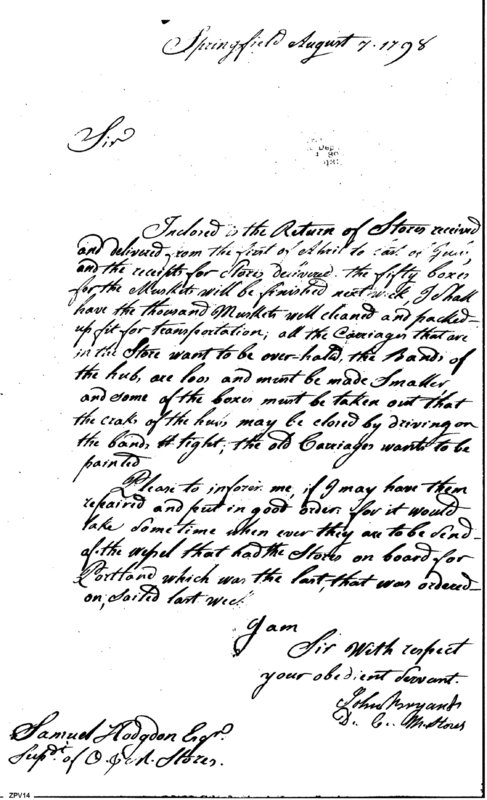 Springfield August 7. 1798
Sir
Inclosed is the Return of Stores received
and delivered from the first of April to last of June,
and the receipts for Stores delivered. the fifty boxes
for the Muskets will be finished next week, I shall
have the thousand Muskets well cleaned and packed-
up fit for transportation; all the Carriages that are
in the Store want to be over-hald, the Bands of
the hub, are loos and must be made Smaller
and some of the boxes must be taken out that
the craks of the huvs may be closed by driving on
the bands tight; the old Carriages wants to be
painted
Please to inform me, if I may have them
repaired and put in good order. for it would
take some time when ever they are to be send-
of. the vessel that had the Stores on board for
Portland which was the last, that was ordered-
on, sailed last week
I am
Sir With respect
your obedient Servant.
John Bryant
D. C. M. Stores
Samuel Hodgdon Esqr.
Supdt. of Stores.
ZPV14